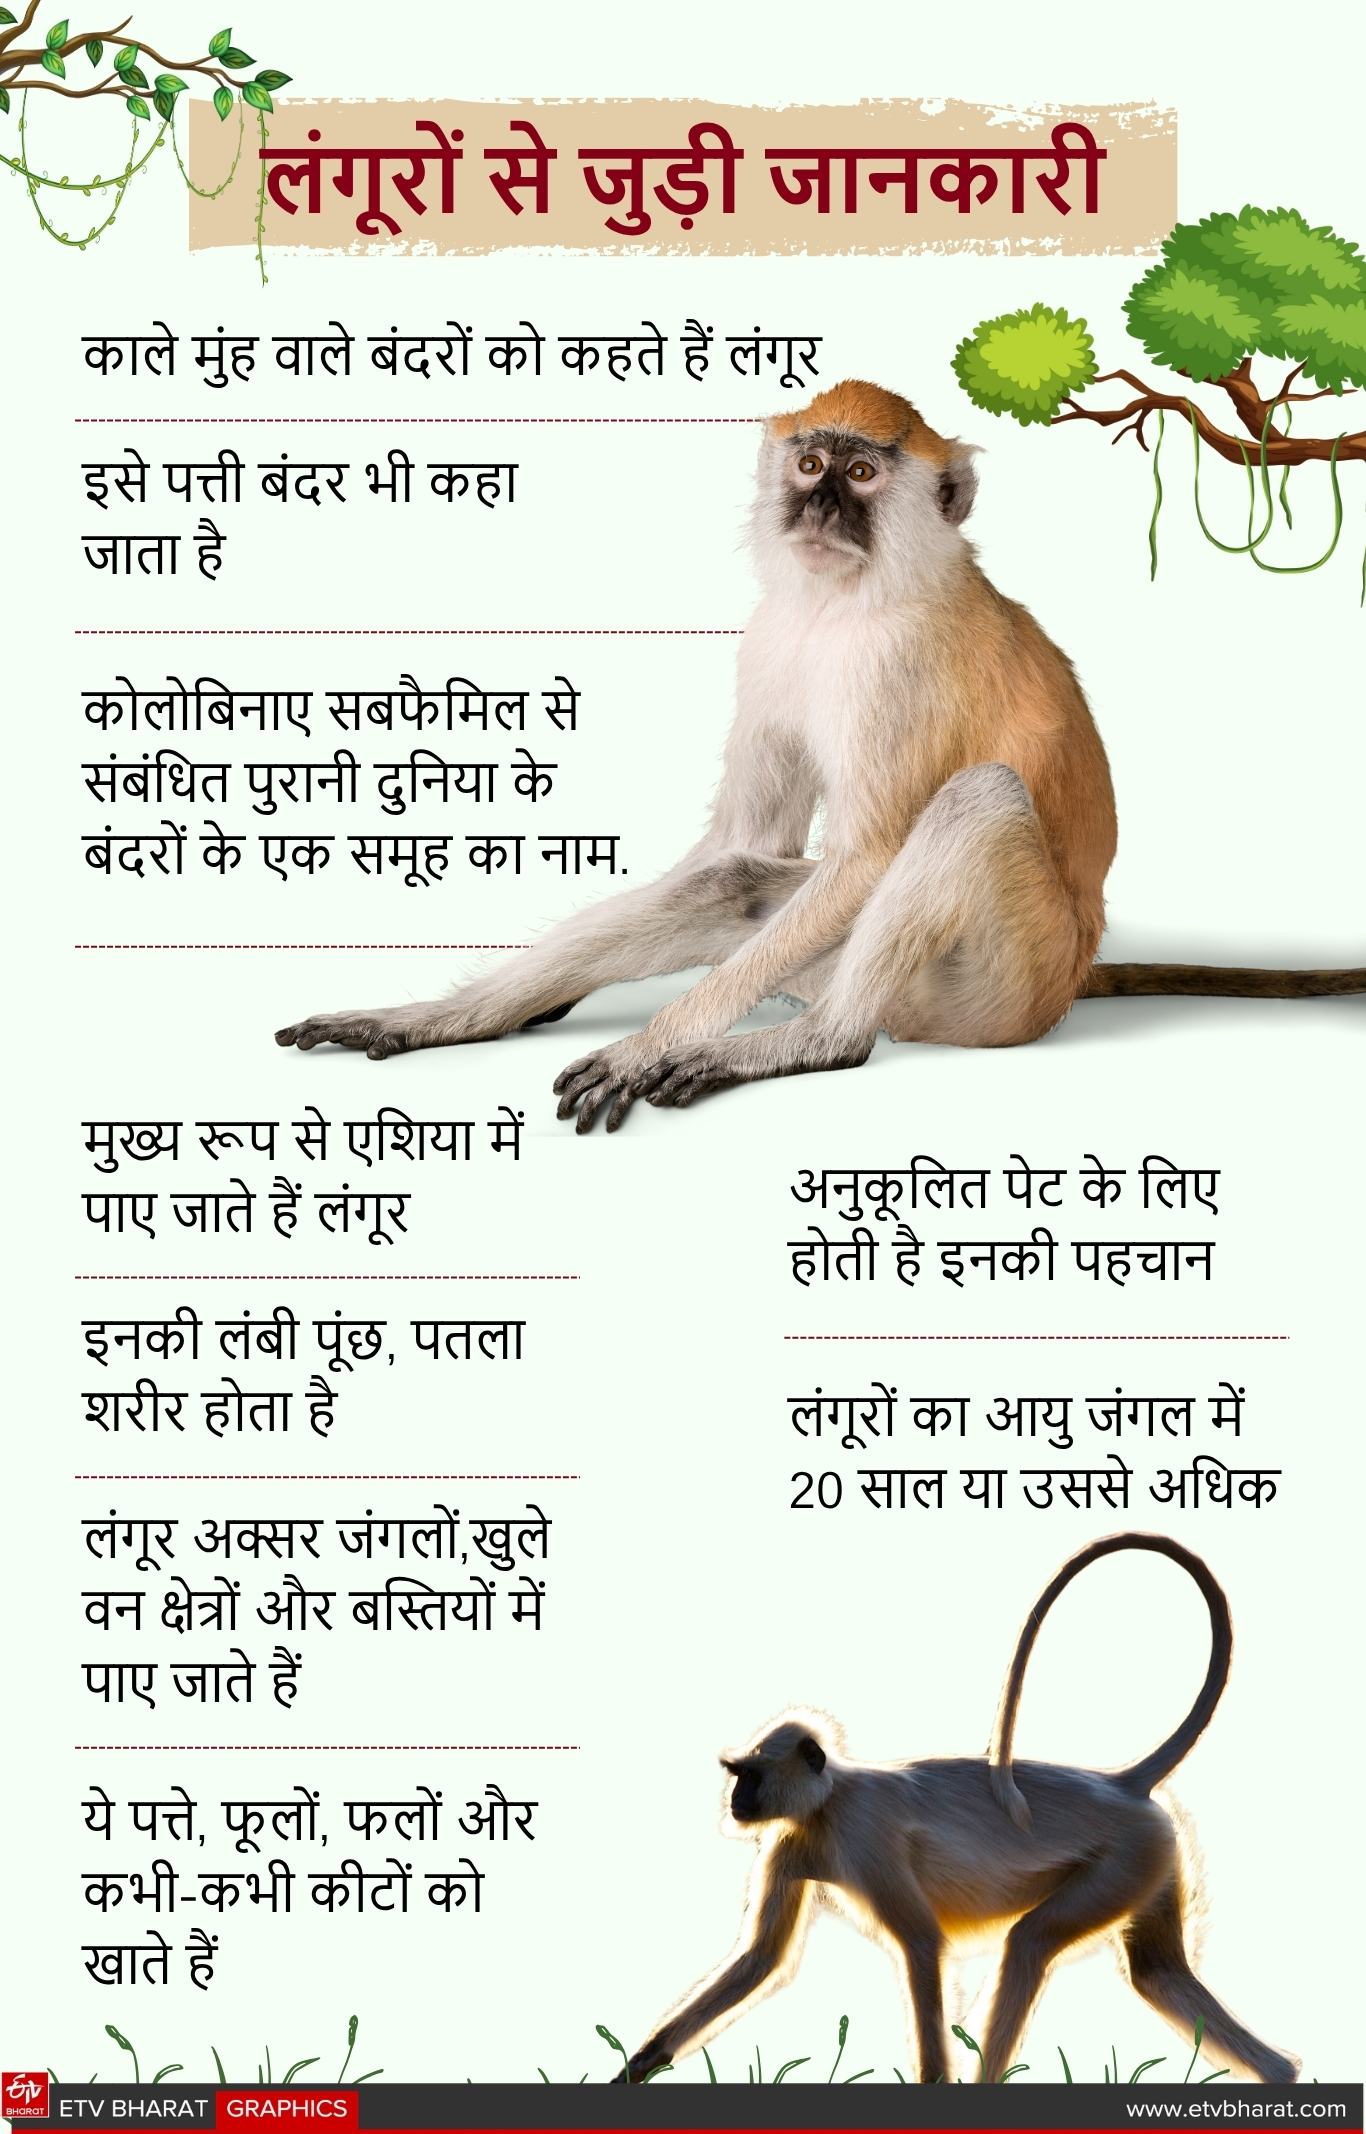 लंगूरों से जुड़ी जानकारी
काले मुंह वाले बंदरों को कहते हैं लंगूर
इसे पत्ती बंदर भी कहा
जाता है
कोलोबिनाए सबफैमिल से
संबंधित पुरानी दुनिया के
बंदरों के एक समूह का नाम.
मुख्य रूप से एशिया में
पाए जाते हैं लंगूर
इनकी लंबी पूंछ, पतला
शरीर होता है
लंगूर अक्सर जंगलों,खुले
वन क्षेत्रों और बस्तियों में
पाए जाते हैं
ये पत्ते, फूलों, फलों और
कभी-कभी कीटों को
खाते हैं
अनुकूलित पेट के लिए
होती है इनकी पहचान
लंगूरों का आयु जंगल में
20 साल या उससे अधिक
ETV BHARAT
ETV BHARAT GRAPHICS
www.etvbharat.com